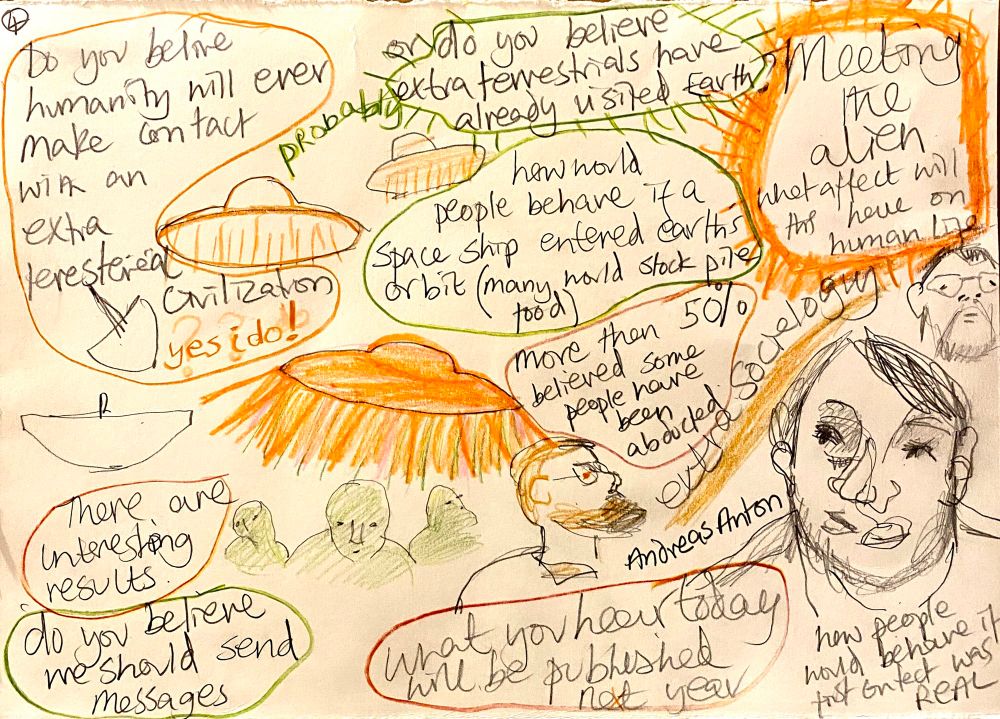 4
Do you belive
humanity will ever
make contact
with an
extra
teresterial
Civilization
yes i do!
probably
or do you believe
extraterrestrials have
already visited Earth
Meeting
the
alien
what affect will
this have on
human life
how world
people behave if a
space ship entered earths
orbit (many world stock pile
food)
more then 50%
believed some
people have
been
abducted
extra socielogy
There are
interesting
results.
do you believe
we should send
messages
Andreas Anton
what you hear today
will be published
next year
how people
would behave if
first contact was
REAL